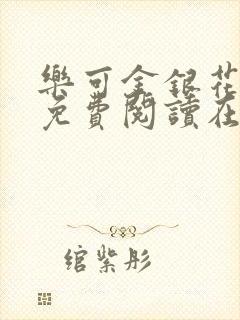 樂可金銀花
免費閱讀在
綰紫彤